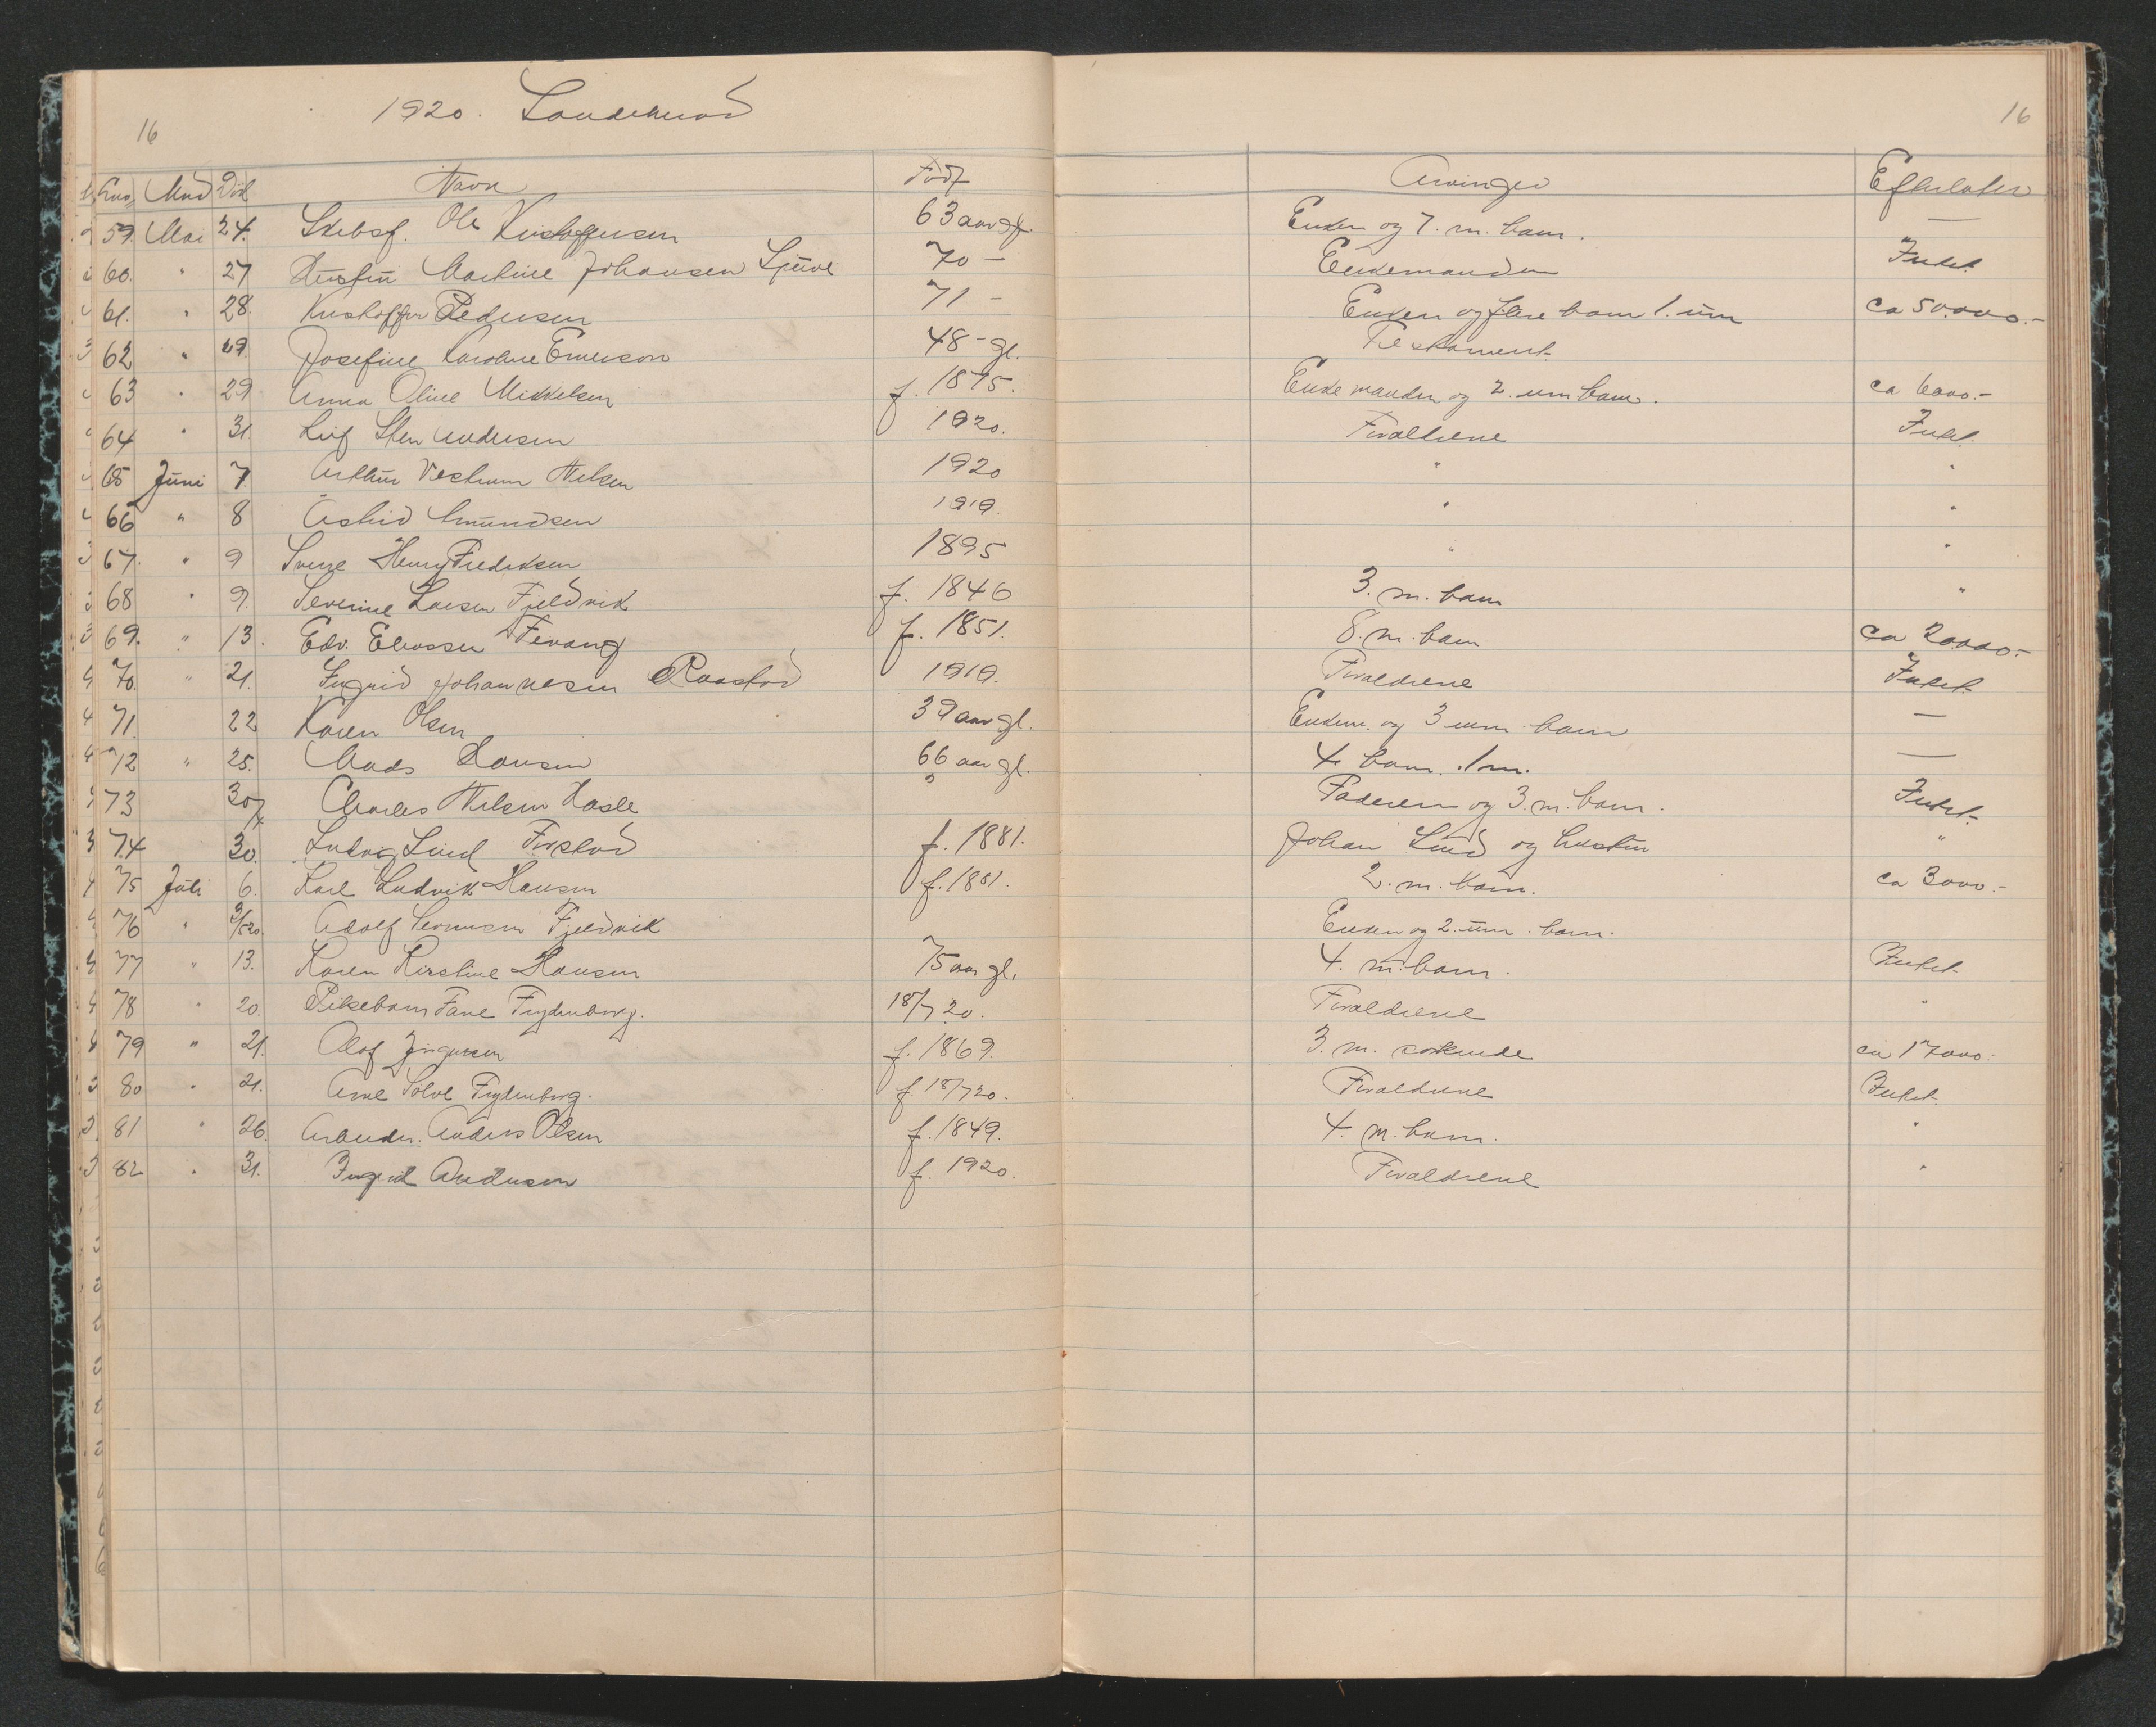 16 1920. Sandeherred 16
Lnr. Mnd Død Navn Født Arvinger Efterlater
59. Mai 24. Skibsf. Ole Kristoffersen 63 aar gl. Enken og 7. m. barn. —
60. " 27 Hustru Martine Johansen 70 – Enkemanden Intet
61. " 28. Kristoffer Pedersen 71 – Enken og flere barn 1. um ca 50.000.-
62 " 29. Josefine Karoline Emerson 48 – gl. Testament
63 " 29 Anna Oline Mikkelsen f. 1875. Enkemanden og 2. um barn. ca 6000.-
64 " 31. Leif Sten Andersen 1920. Forældrene Intet
65 Juni 7 Arthur Vestrum Nilsen 1920 " "
66 " 8 Astrid Amundsen 1919. " "
67. " 9 Sverre Henry Fredriksen 1895 " "
68 " 9. Severine Larsen Fjeldvik f. 1846 3. m. barn "
69. " 13. Edv. Eliassen Fevang f. 1851. 8. m. barn ca 20.000.-
70. " 21. Ingrid Johannesen Raastad 1919. Forældrene Intet
71. 22 Karen Olsen 39 aar gl. Enkem. og 3 um barn —
72 " 25. Mads Hansen 66 aar gl. 4 barn. 1 m. —
73 30/4 Charles Nilsen Hasle " Faderen og 3. m. barn. Intet
74 30. Ludvig Lind Firstad f. 1881. Johan Lind og hustru "
75 Juli 6. Karl Ludvik Hansen f. 1881. 2. m. barn. ca 3000.-
76 " 3/5 20. Adolf Fjeldvik Enken og 2. um. barn.
77 " 13. Karen Kirstine Hansen 75 aar gl. 4. m. barn. Intet
78 " 20. Pikebarn Fane Frydenborg. 18/7 20. Forældrene "
79 " 21. Olaf Jørgensen f. 1869. 3. m. søskende ca 17000.-
80 " 21. Arne Solve Frydenborg. f. 18/7 20. Forældrene Intet.
81 " 26. Arbeider. Anders Olsen f. 1849. 4. m. barn. "
82 " 31. Ingrid Andersen f. 1920. Forældrene "